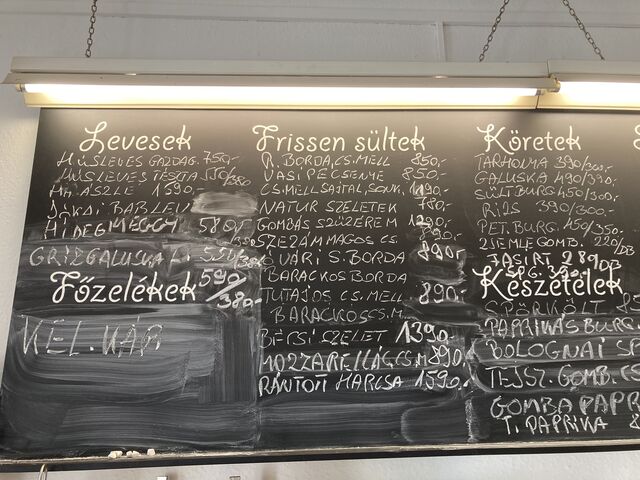 Levesek
HÚSLEVES GAZDAG. 750,-
HÚSLEVES TÉSZTA 550/380
HALÁSZLÉ 1590.-
JÓKAI BABLEV
HIDEG MEGGY 580,-
GRÍZGALUSKA L. 550,-
Főzelékek 590/380.-
KEL. KÁP
Frissen sültek
R. BORDA, CS. MELL 850,-
VASI PECSENYE 850,-
CS. MELL SAJTAL, SONK. 1190.-
NATUR SZELETEK 780,-
GOMBÁS SZŰZÉREM 1290.-
SZEZÁMMAGOS CS. 890,-
ÓVÁRI S. BORDA 890,-
BARACKOS BORDA
TUTAJOS CS. MELL. 890,-
BARACKOS CS. M.
BÉCSI SZELET 1390,-
MOZZARELLÁS CS. M 890,-
RÁNTOTT HARCSA 1590.-
Köretek
TARHONYA 390/300.-
GALUSKA 490/390,-
SÜLT BURG 450/300,-
RIZS 390/300.-
PET. BURG. 450/350,
ZSEMLEGOMB. 220/DB
FASÍRT 289/DB
SPG. 390.-
Készételek
SPÖRKÖLT
PAPRIKÁS BURG
BOLOGNAI SP
TEJSZ. GOMB. CS
GOMBA PAPR
T. PAPRIKA